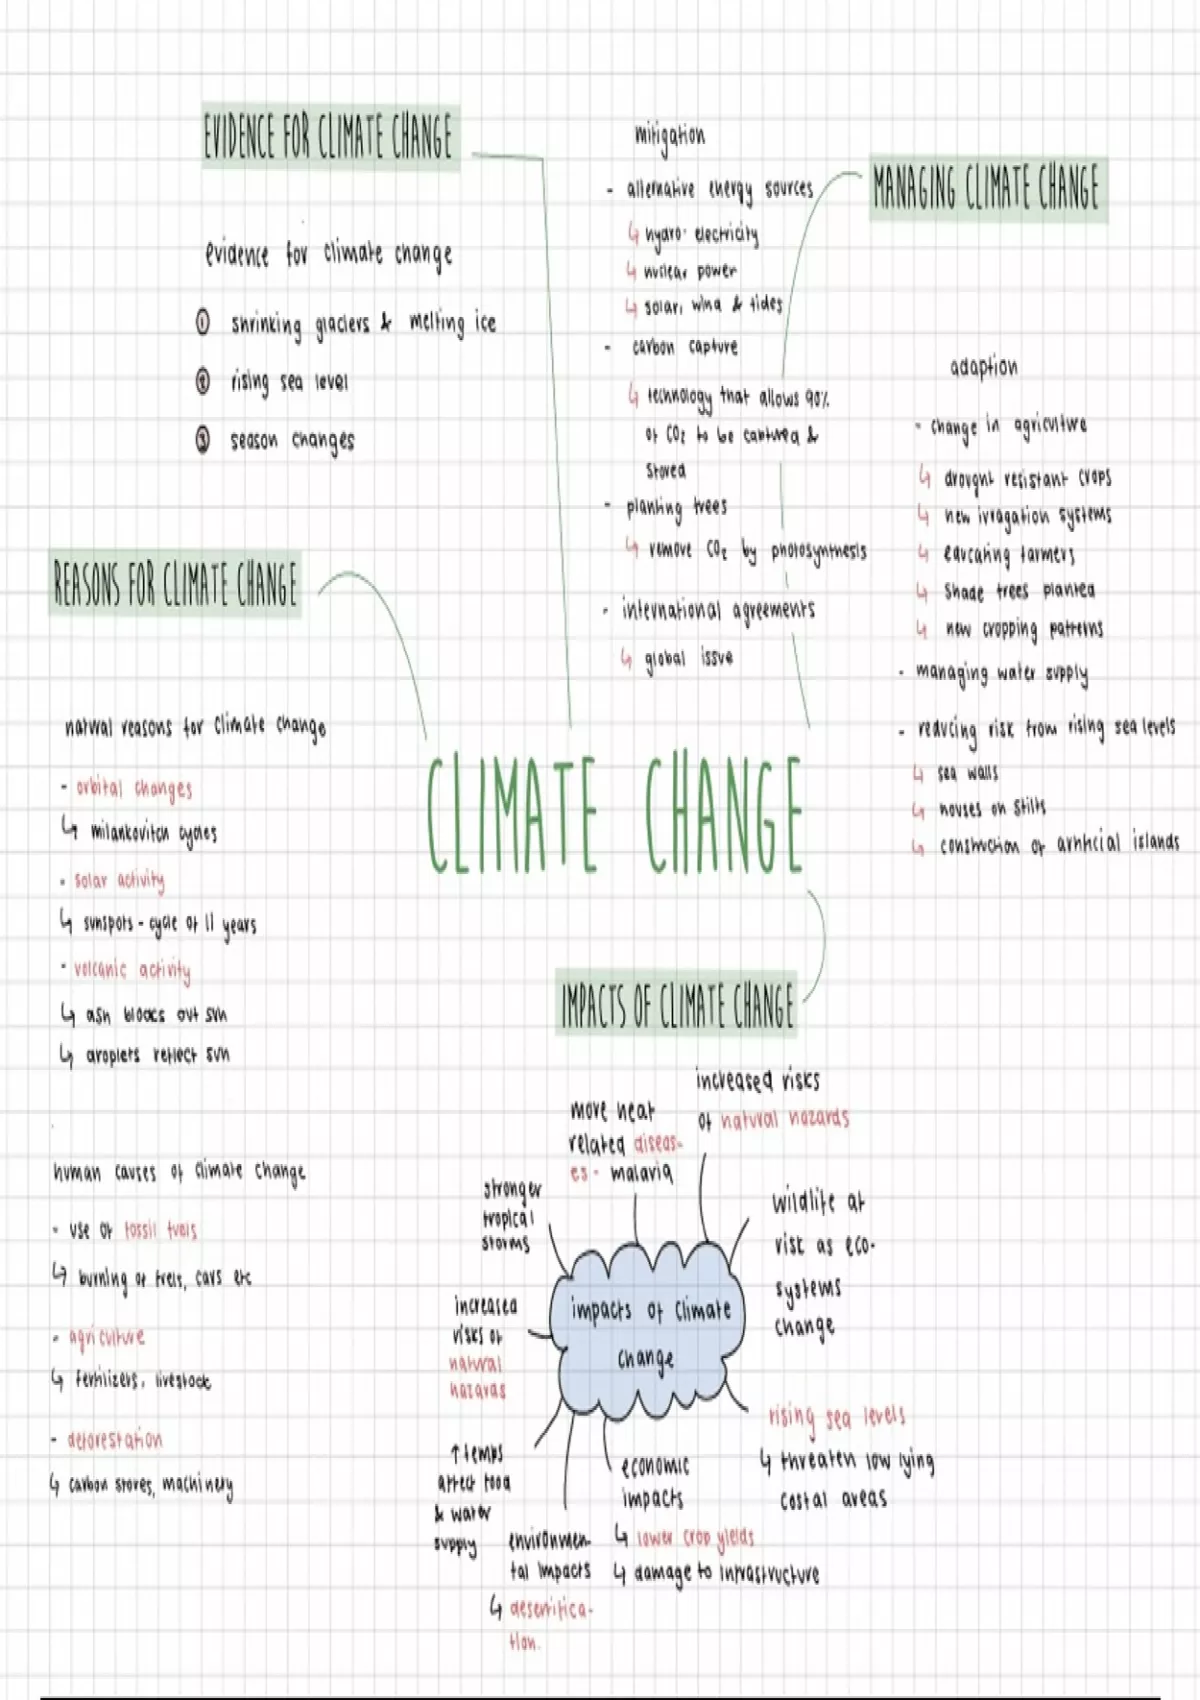 EVIDENCE FOR CLIMATE CHANGE
evidence for climate change
① shrinking glaciers & melting ice
② rising sea level
③ season changes
mitigation
- alternative energy sources
↳ hydro-electricity
↳ nuclear power
↳ solar, wind & tides
- carbon capture
↳ technology that allows 90%
of CO₂ to be captured &
stored
- planting trees
↳ remove CO₂ by photosynthesis
- international agreements
↳ global issue
MANAGING CLIMATE CHANGE
adaption
- change in agriculture
↳ drought resistant crops
↳ new irragation systems
↳ educating farmers
↳ shade trees planted
↳ new cropping patterns
- managing water supply
- reducing risk from rising sea levels
↳ sea walls
↳ houses on stilts
↳ construction of artificial islands
REASONS FOR CLIMATE CHANGE
natural reasons for climate change
- orbital changes
↳ milankovitch cycles
- solar activity
↳ sunspots - cycle of 11 years
- volcanic activity
↳ ash blocks out sun
↳ droplets reflect sun
human causes of climate change
- use of fossil fuels
↳ burning of fuels, cars etc
- agriculture
↳ fertilizers, livestock
- deforestation
↳ carbon stores, machinery
CLIMATE CHANGE
IMPACTS OF CLIMATE CHANGE
impacts of climate
change
increased risks
of natural hazards
more heat
related diseas-
es - malaria
stronger
tropical
storms
increased
risks of
natural
hazards
↑ temps
affect food
& water
supply
environmen-
tal impacts
↳ desertifica-
tion.
economic
impacts
↳ lower crop yields
↳ damage to infrastructure
wildlife at
risk as eco-
systems
change
rising sea levels
↳ threaten low lying
costal areas